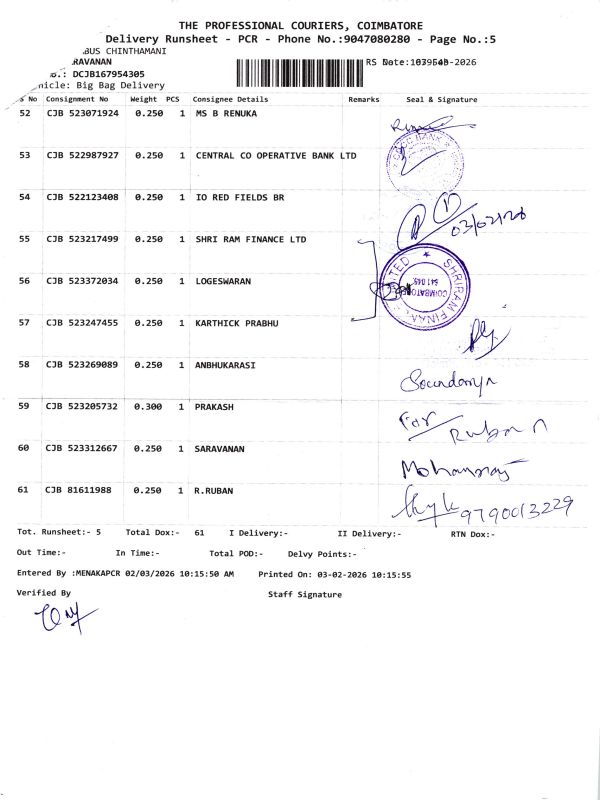 THE PROFESSIONAL COURIERS, COIMBATORE
Delivery Runsheet - PCR - Phone No.:9047080280 - Page No.:5
BUS CHINTHAMANI
RAVANAN
RS
.: DCJB167954305
hicle: Big Bag Delivery
s No Consignment No Weight PCS Consignee Details Remarks Seal & Signature
52 CJB 523071924 0.250 1 MS B RENUKA
53 CJB 522987927 0.250 1 CENTRAL CO OPERATIVE BANK LTD
BANK
54 CJB 522123408 0.250 1 IO RED FIELDS BR
03/02/26
55 CJB 523217499 0.250 1 SHRI RAM FINANCE LTD
SHRIRAM FINANCE LIMITED
COIMBATORE
641 045
56 CJB 523372034 0.250 1 LOGESWARAN
57 CJB 523247455 0.250 1 KARTHICK PRABHU
58 CJB 523269089 0.250 1 ANBHUKARASI
Soundarya
59 CJB 523205732 0.300 1 PRAKASH
For
Ruban
60 CJB 523312667 0.250 1 SARAVANAN
Mohanraj
61 CJB 81611988 0.250 1 R.RUBAN
9790013229
Tot. Runsheet:- 5 Total Dox:- 61 I Delivery:- II Delivery:- RTN Dox:-
Out Time:- In Time:- Total POD:- Delvy Points:-
Entered By :MENAKAPCR 02/03/2026 10:15:50 AM Printed On: 03-02-2026 10:15:55
Verified By Staff Signature